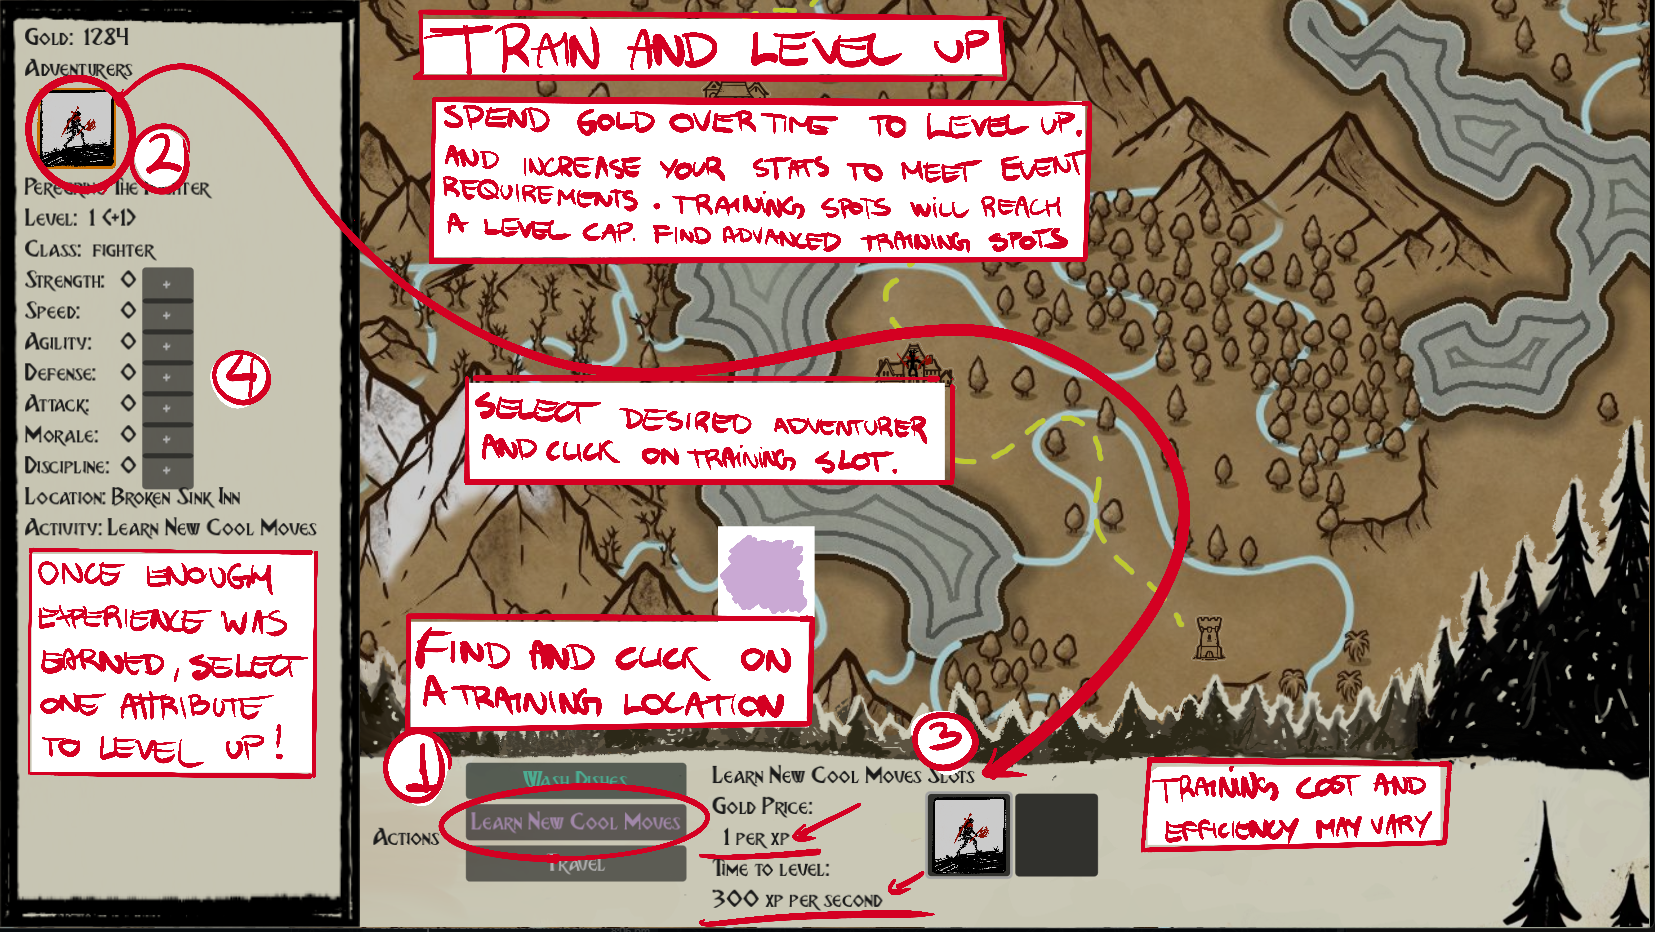 Gold: 1284
Adventurers
2
Peregrino The Fighter
Level: 1 (+1)
Class: fighter
Strength: 0 +
Speed: 0 +
Agility: 0 +
Defense: 0 +
Attack: 0 +
Morale: 0 +
Discipline: 0 +
4
Location: Broken Sink Inn
Activity: Learn New Cool Moves
ONCE ENOUGH
EXPERIENCE WAS
EARNED, SELECT
ONE ATTRIBUTE
TO LEVEL UP!
TRAIN AND LEVEL UP
SPEND GOLD OVER TIME TO LEVEL UP.
AND INCREASE YOUR STATS TO MEET EVENT
REQUIREMENTS. TRAINING SPOTS WILL REACH
A LEVEL CAP. FIND ADVANCED TRAINING SPOTS
SELECT DESIRED ADVENTURER
AND CLICK ON TRAINING SLOT.
FIND AND CLICK ON
A TRAINING LOCATION
1
Actions
Wash Dishes
Learn New Cool Moves
Travel
3
Learn New Cool Moves Slots
Gold Price:
1 per xp
Time to level:
300 xp per second
TRAINING COST AND
EFFICIENCY MAY VARY